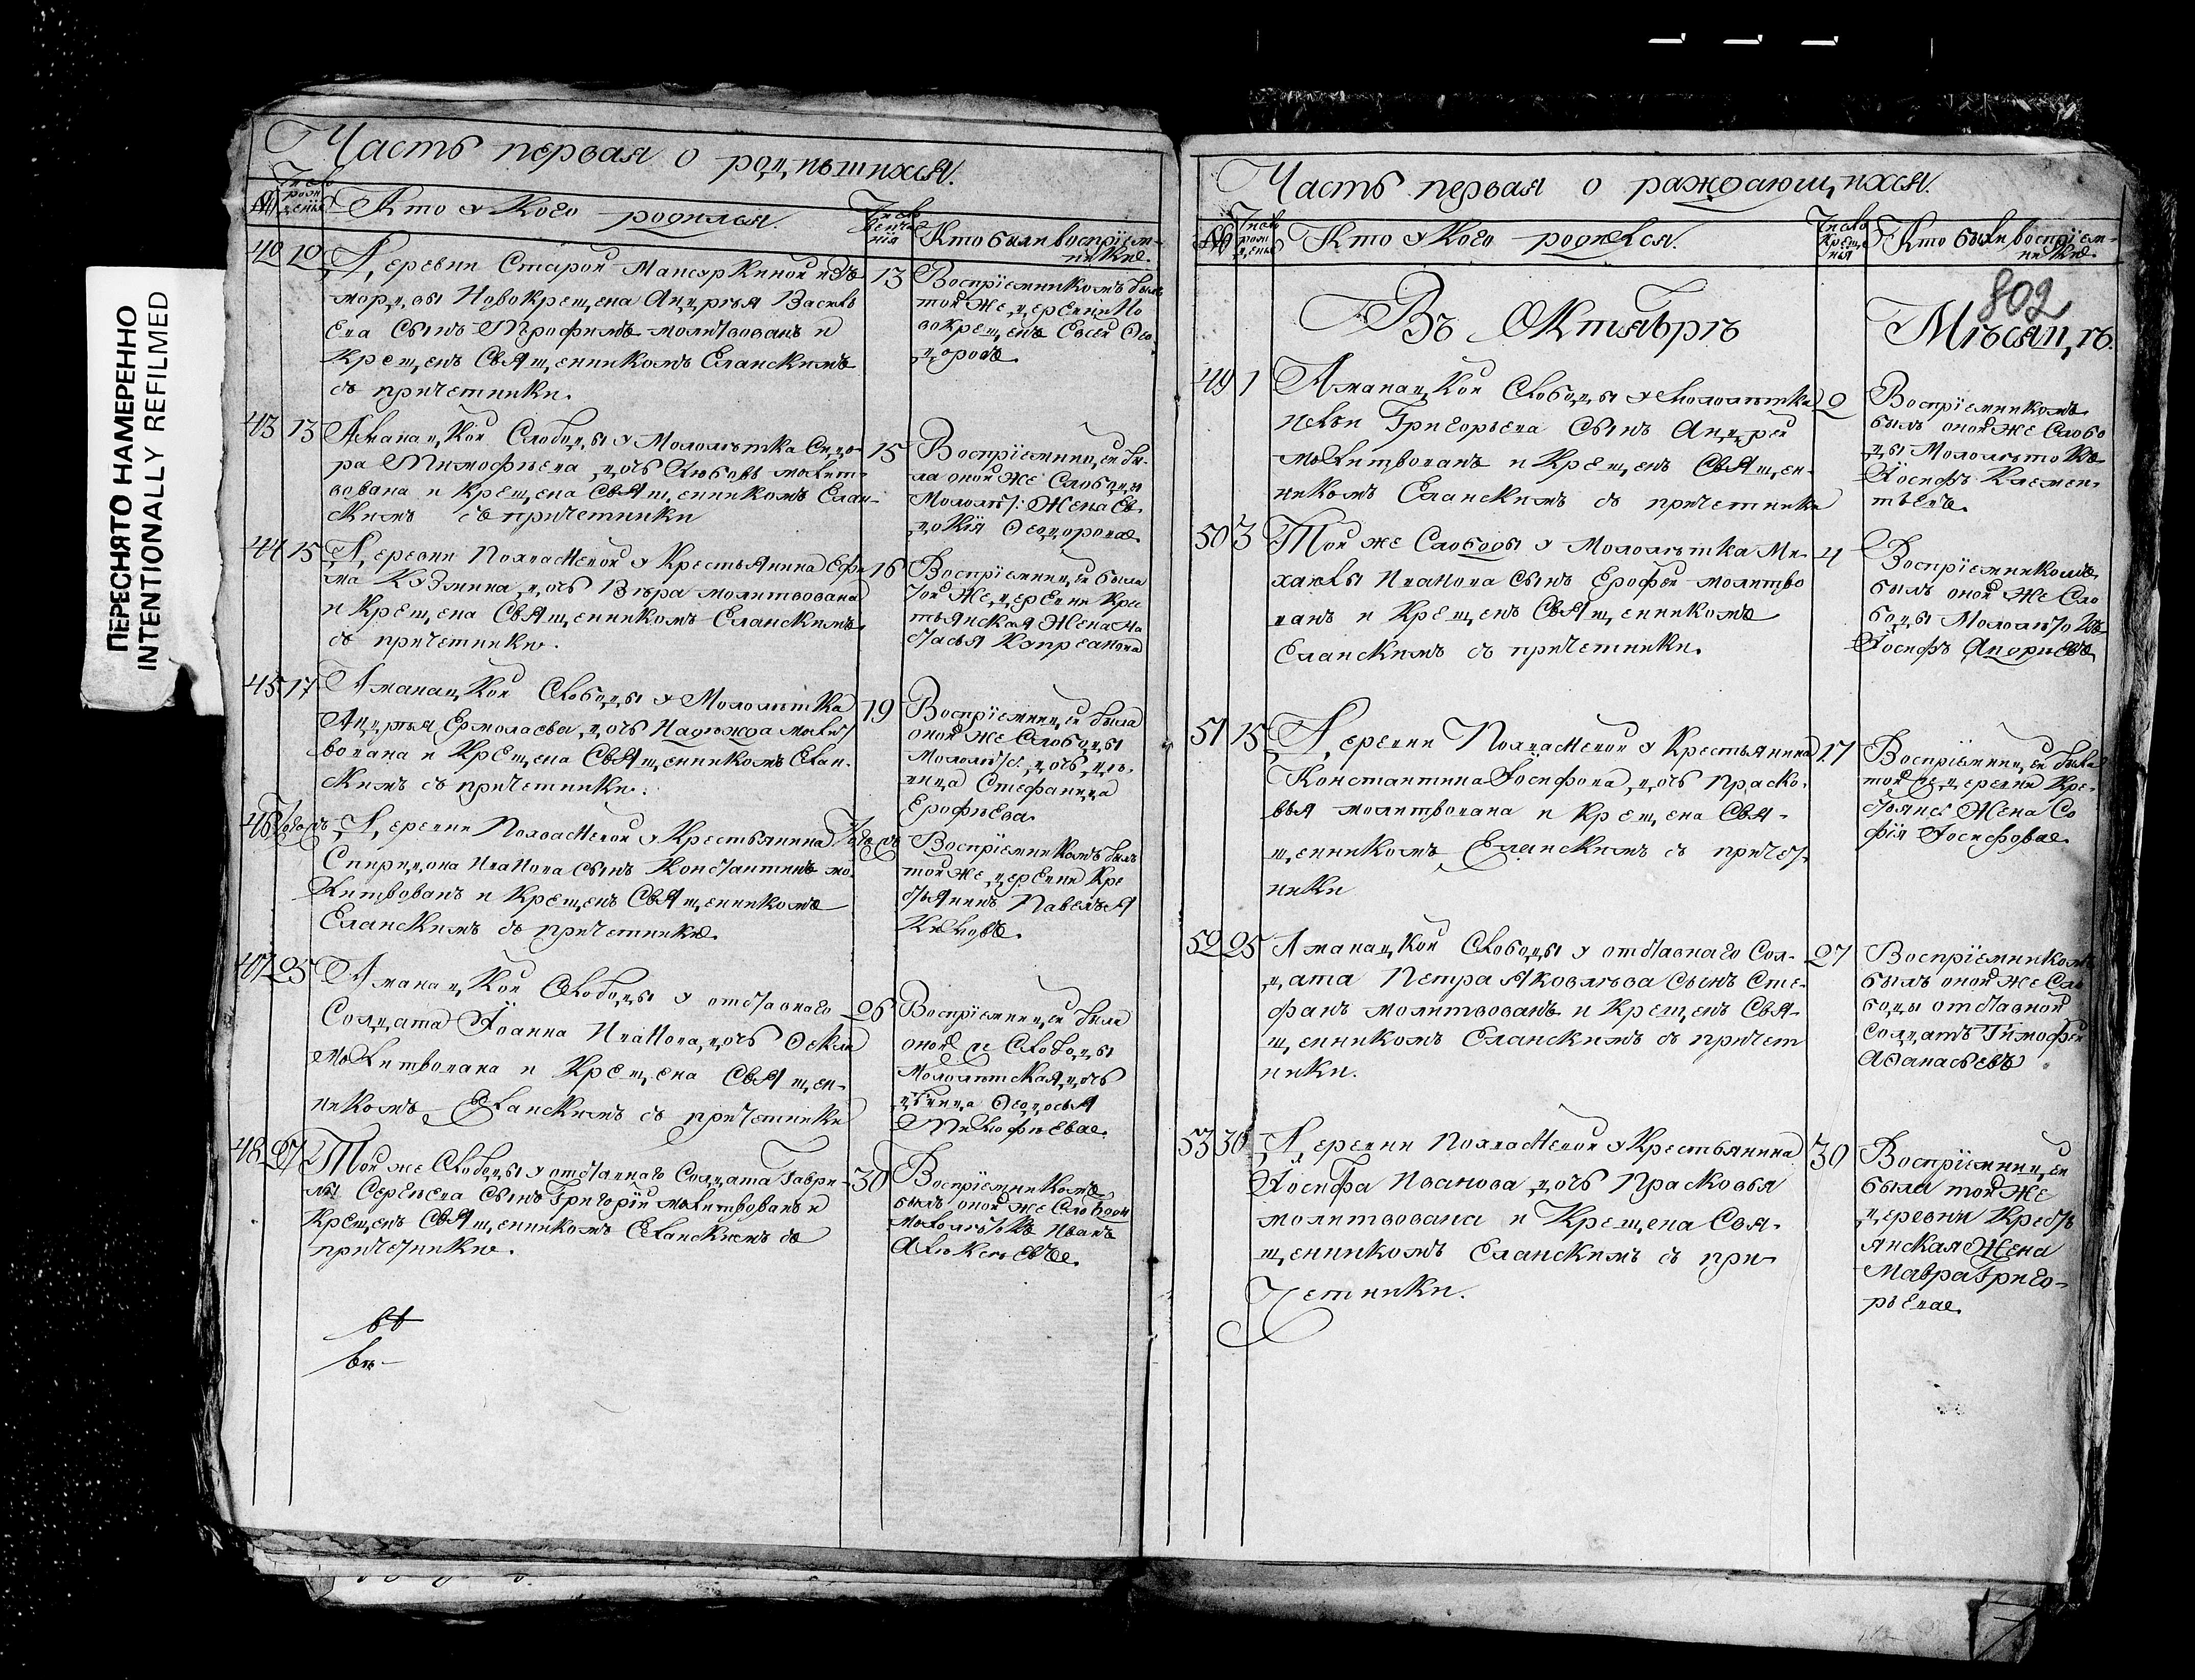 ПЕРЕСНЯТО НАМЕРЕННО
INTENTIONALLY REFILMED
Часть первая о родившихся.
№ Число рождения Кто у кого родился. Число Кто были воспріем-
ники.
42 12 Деревни Старой Мансыркиной изъ
мордвы Новокрещена Андрѣя Василь
ева сынъ Трофимъ молитвованъ и
крещенъ священникомъ Еланскимъ
съ причетники.
13 Воспріемникомъ былъ
той же деревни Но
вокрещенъ Евсей Фео
доровъ.
43 13 Аманацкой Слободы у Молольтка Сидо-
ра Тимофѣева дочь Любовь молит-
вована и крещена священникомъ Елан-
скимъ съ причетники
15 Воспріемницей бы-
ла оной же Слободы
Жена Ев-
докія Феодорова.
44 15 Деревни у Крестьянина Ефи
ма Кузмина дочь Вѣра молитвована
и крещена священникомъ Еланскимъ
съ причетники.
16 Воспріемницей была
той же деревни Крес
тьянская Жена На
стасья Купреанова
45 17 Аманацкой Слободы у
Андрѣя Ермолаева дочь Надежда молит
вована и крещена священникомъ Елан-
скимъ съ причетники.
19 Воспріемницей была
оной же Слободы
дочь дѣ-
вица Стефанида
Ерофѣева.
46 Деревни у Крестьянина
Спиридона Иванова сынъ Константинъ мо
литвованъ и крещенъ священникомъ
Еланскимъ съ причетники.
Воспріемникомъ былъ
той же деревни Кре
стьянинъ Павелъ
47 25 Аманацкой Слободы у отставнаго
Солдата Іоанна Иванова дочь Фекла
молитвована и крещена священ-
никомъ Еланскимъ съ причетники
26 Воспріемницей была
оной же Слободы
дочь
дѣвица Феодосья
Тимофѣева.
48 27 Той же Слободы у отставнаго Солдата Гаври-
лы Сергѣева сынъ Григорій молитвованъ и
крещенъ священникомъ Еланскимъ съ
причетники.
30 Воспріемникомъ
былъ оной же Слободы
Иванъ
Алексѣевъ.
Часть первая о раждающихся.
№ Число рожденія Кто у кого родился. Число крещенія Кто были воспріем-
ники.
802
Въ Октябрѣ Мѣсяцѣ.
49 1 Аманацкой Слободы у
Григорьева сынъ Андрей
молитвованъ и крещенъ священ-
никомъ Еланскимъ съ причетники
2 Воспріемникомъ
былъ оной же Слобо
ды
Іосифъ Клемен-
тьевъ.
50 3 Той же Слободы у Ми-
хайлы Иванова сынъ Ерофей молитво
ванъ и крещенъ священникомъ
Еланскимъ съ причетники.
4 Воспріемникомъ
былъ оной же Сло
боды
Іосифъ Андрѣевъ
51 15 Деревни у Крестьянина
Константина Іосифова дочь Праско-
вья молитвована и крещена свя-
щенникомъ Еланскимъ съ причет-
ники
17 Воспріемницей была
той же деревни Кре-
стьянс: Жена Со
фія Іосифова.
52 25 Аманацкой Слободы у отставнаго Сол-
дата Петра Яковлѣва сынъ Сте-
фанъ молитвованъ и крещенъ свя-
щенникомъ Еланскимъ съ причет
ники.
27 Воспріемникомъ
былъ оной же Сло
боды отставной
Солдатъ Тимофей
Афанасьевъ
53 30 Деревни у Крестьянина
Іосифа Иванова дочь Прасковья
молитвована и крещена свя-
щенникомъ Еланскимъ съ при-
четники.
30 Воспріемницей
была той же
деревни Кресть
янская Жена
Мавра Григо-
рьева.